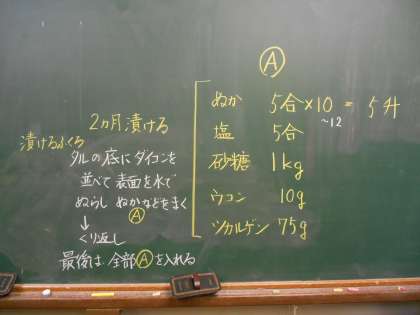 2ヵ月漬ける
漬けるふくろ
タルの底にダイコンを
並べて表面を水で
ぬらし ぬかなどをまく
Ⓐ
↓
くり返し
最後は 全部Ⓐを入れる
Ⓐ
ぬか 5合×10 = 5升
~12
塩 5合
砂糖 1kg
ウコン 10g
ツカルゲン 75g